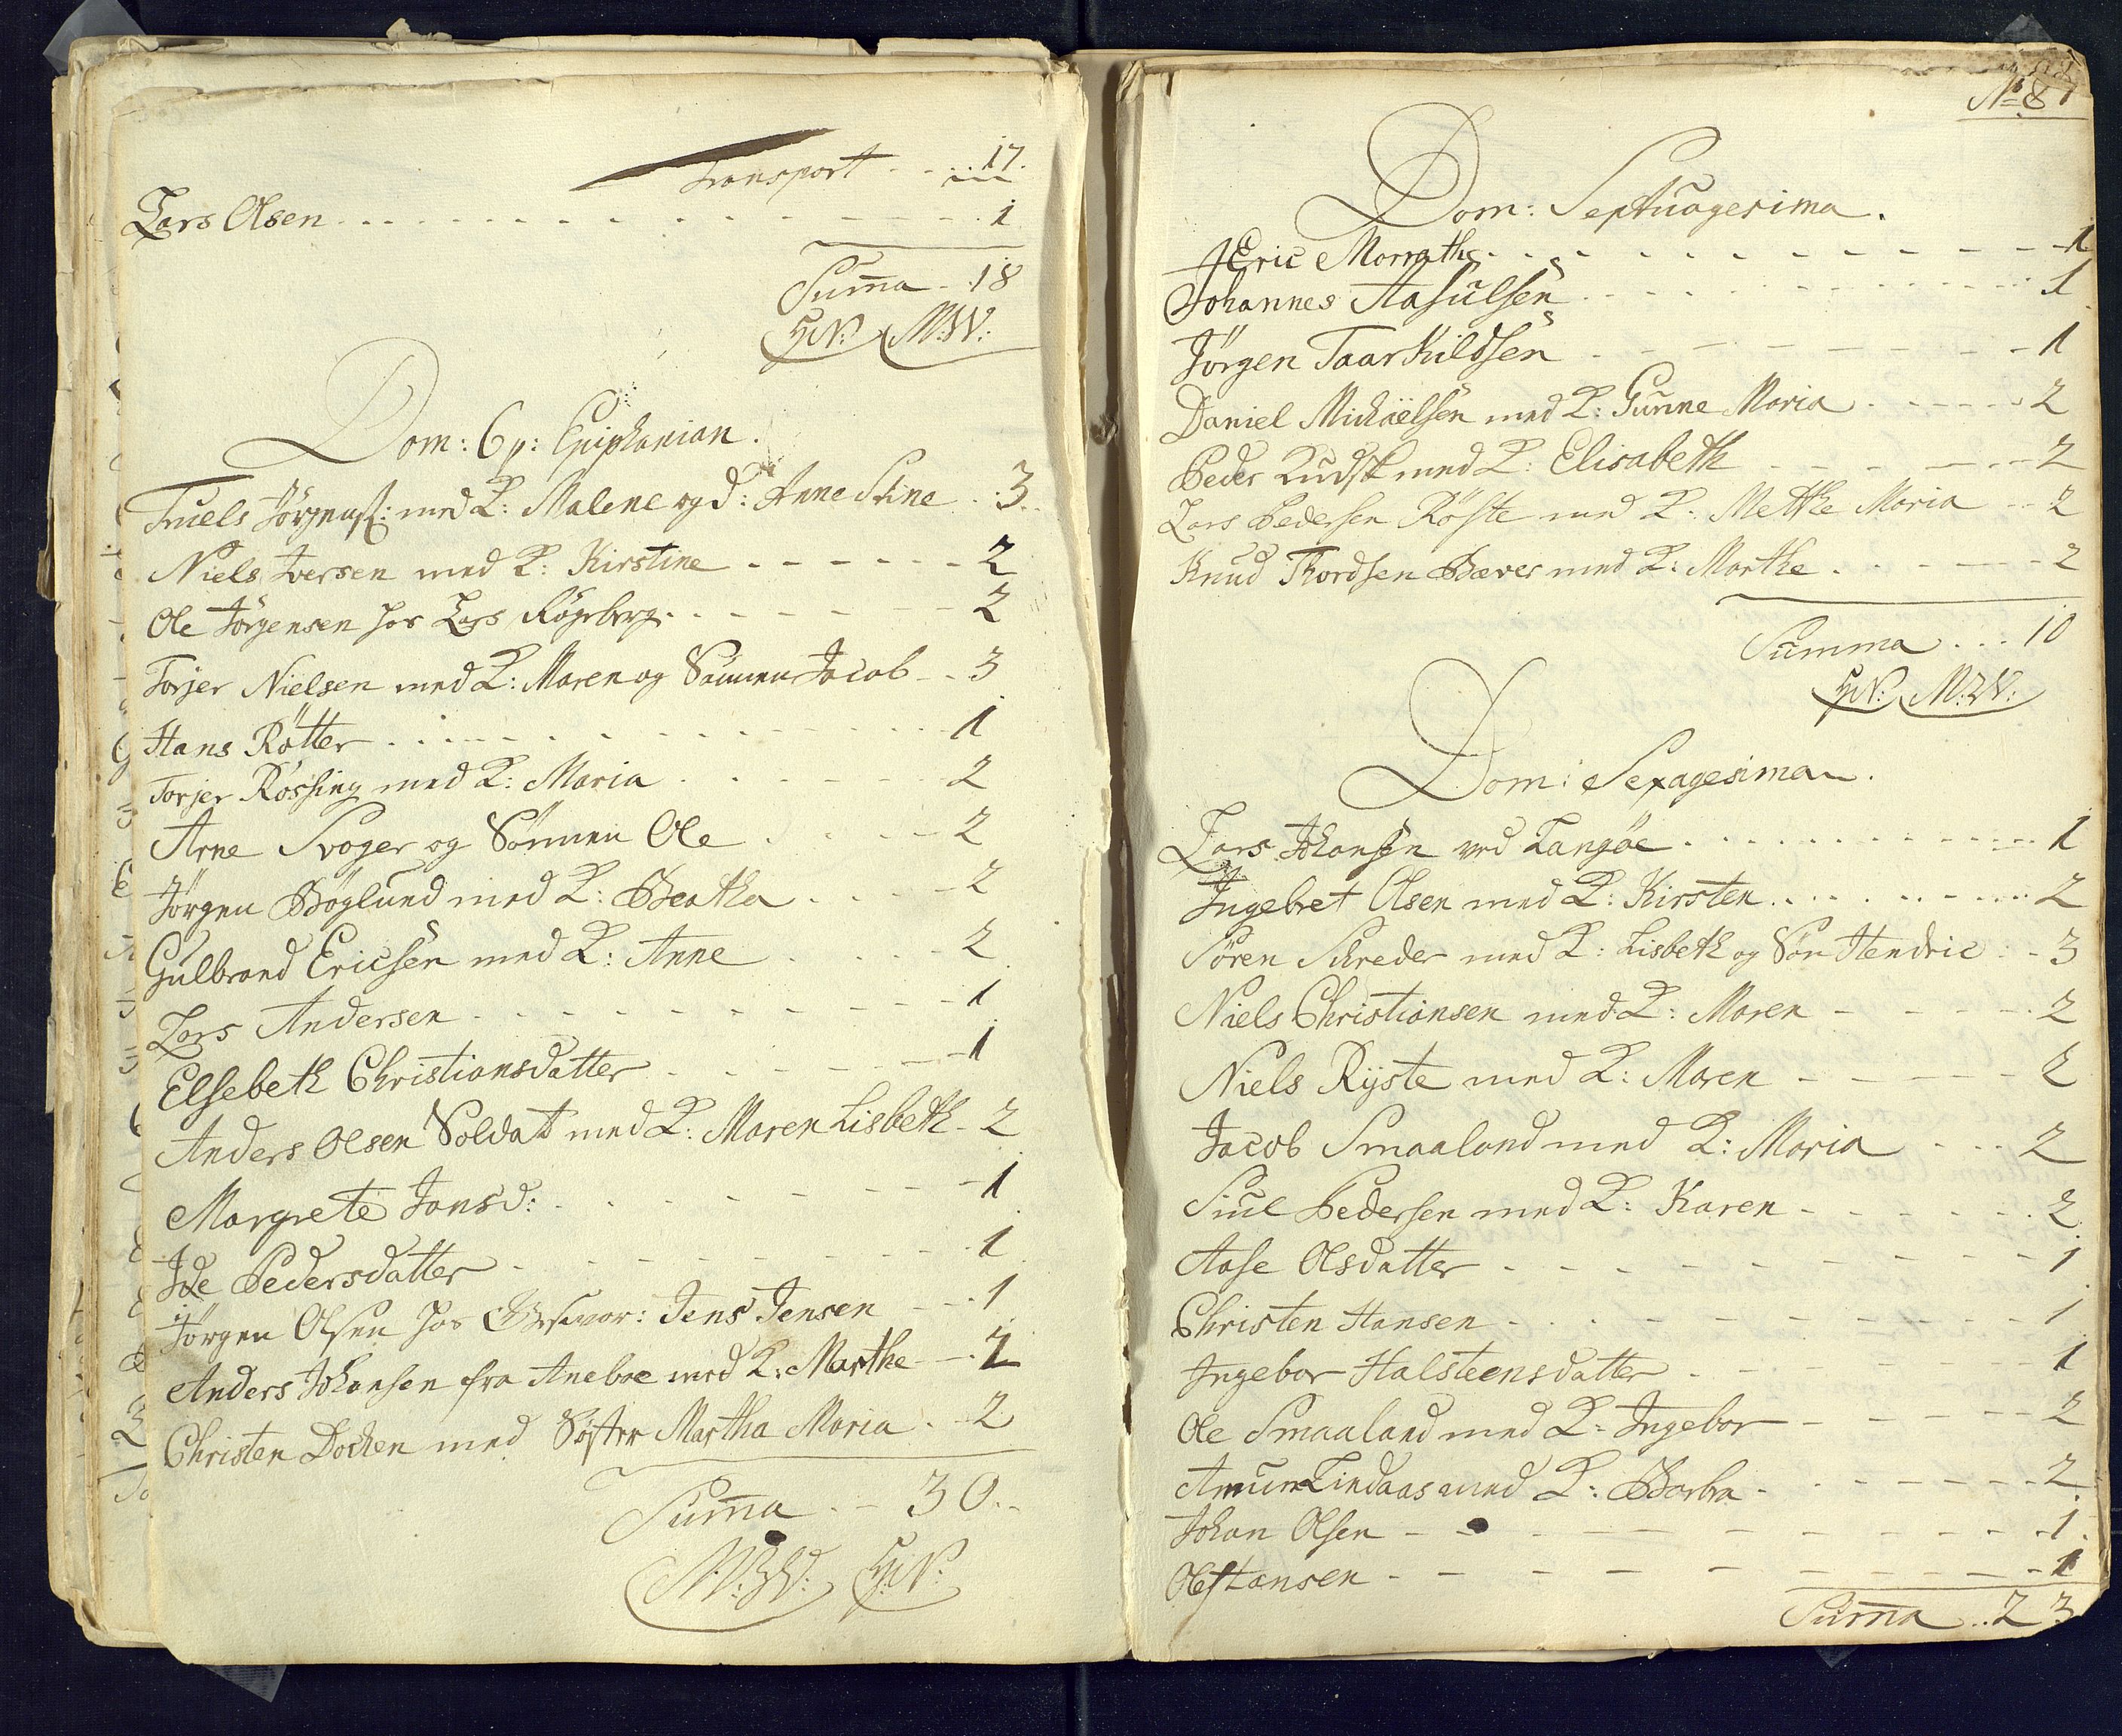 Transport - - - 17.
Lars Olsen - - - 1
Suma - 18
HN: M:W:
Dom: 6 p: Epiphanian.
Truels Jörgens: med K: Malene og d: Anne Stine - 3.
Niels Iversen med K: Kirstine - - - 2
Ole Jörgensen hos Lars Rögeberg - - - 2
Torjer Nielsen med K: Maren og Sönnen Jacob - - 3
Hans Rötter - - - 1
Torjer Rössing med K: Maria - - - 2
Arne Svager og Sönnen Ole - - - 2
Jörgen Böglund med K: Beatha - - - 2
Gulbrand Ericsen med K: Anne - - - 2
Lars Andersen - - - 1
Elsebeth Christiansdatter - - - 1
Anders Olsen Soldat med K: Maren Lisbeth - 2
Margrete Jansd: - - - 1
Ide Pedersdatter - - - 1
Jörgen Olsen hos Jens Jensen - - - 1
Anders Johansen fra Aneboe med K: Marthe - - 2
Christen Docken med Söster Martha Maria - - 2
Suma - - 30 - -
M:W: HN:
No 8
Dom: Septuagesima.
Eric Morrath - - - 1
Johannes Aasulsen - - - 1
Jörgen Taarkildsen - - - 1
Daniel Michaëlsen med K: Gunne Maria - - - 2
Peder Kudsk med K: Elisabeth - - - 2
Lars Pedersen Röste med K: Methe Maria - - 2
Knud Thordsen Bæver med K: Marthe - - - 2
Summa - - - 10
HN: M:W:
Dom: Sexagesima.
Lars Johansen ved Langöe - - - 1
Ingebret Olsen med K: Kirsten - - - 2
Sören Schreder med K: Lisbeth og Sön Hendric - - 3
Niels Christiansen med K: Maren - - - 2
Niels Ryste med K: Maren - - - 2
Jacob Smaaland med K: Maria - - - 2
Siul Pedersen med K: Karen - - - 2
Aase Olsdatter - - - 1
Christen Hansen - - - 1
Ingebor Halsteensdatter - - - 1
Ole Smaaland med K: Ingebor - - - 2
Amun Lindaas med K: Barbra - - - 2
Johan Olsen - - - 1
Ole Hansen - - - 1
Suma - - 23